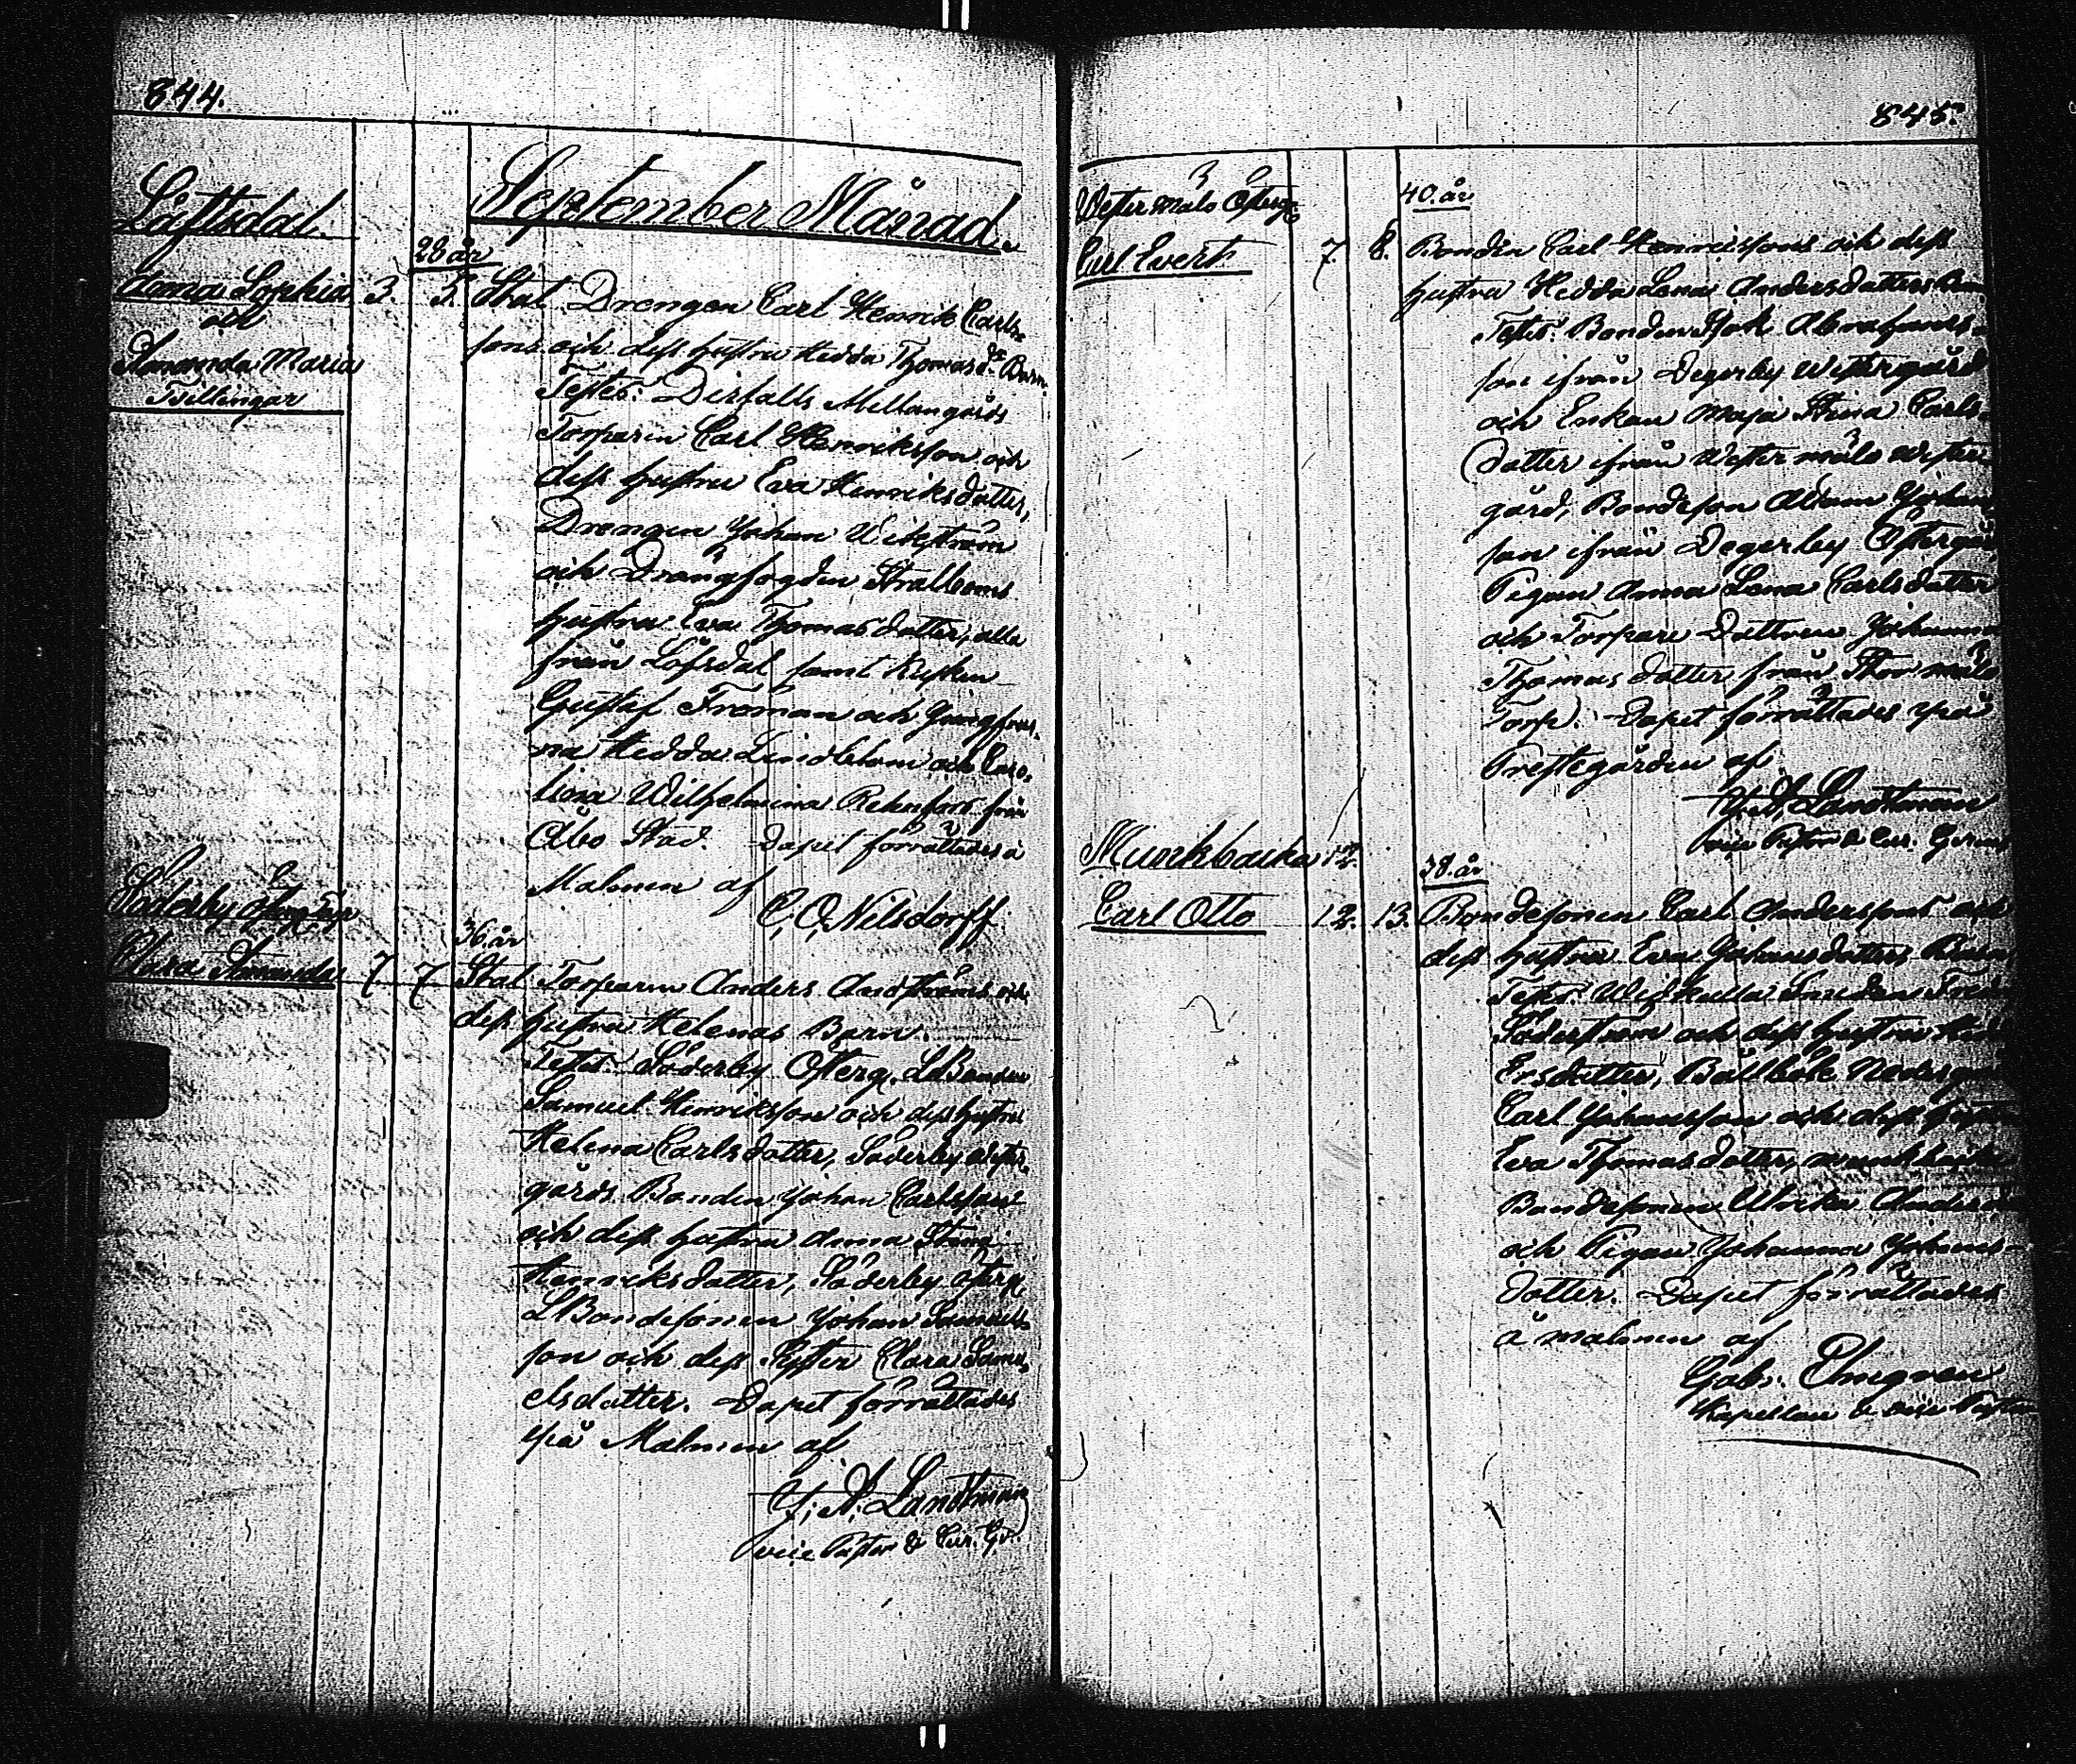 844.
September Månad.
Löftsdal.
28 år
Anna Sophia 3. 5. Stat Drengen Carl Henrik Carls=
och
sons och dess hustru Hedda Thomas dr Barn.
Amanda Maria
Tvillingar
Testes: Dirfalls Mellangårds
Torparen Carl Henriksson och
dess hustru Eva Henriksdotter,
Drengen Johan Wikström
och Drängfogden Stralboms
hustru Eva Thomasdotter, alla
från Löfsdal samt Kusken
Gustaf Froman och Jungfrur-
na Hedda Lindblom och Caro-
lina Wilhelmina från
Åbo Stad. Dopet förrättades å
Malmen af
C. O. Nilsdorff.
Söderby Österg. Torp
36. år
Clara Amanda 7. 7 Stat Torparen Anders och
dess hustru Helenas Barn.
Testes: Söderby Österg. LBonden
Samuel Henriksson och dess hustru
Helena Carlsdotter, Söderby Wester-
gårds Bonden Johan Carlsson
och dess hustru Anna Stina
Henricksdotter, Söderby Österg.
LBondesonen Johan Samuels-
son och dess Syster Clara Samu-
elsdotter. Dopet förrättades
på Malmen af
J. A. Landtman
vice Pastor & Cur. Gr.
845.
Westermålo Österg.
40. år
Carl Evert 7. 8. Bonden Carl Henricssons och dess
hustru Hedda Lena Andersdotters Barn
Testes: Bonden Isak Abrahams-
son ifrån Degerby Westergård
och Enkan Maja Stina Carls-
dotter ifrån Westermålo Wester-
gård, Bondeson Adam Johans-
son ifrån Degerby Östergård
Pigan Anna Lena Carlsdotter
och Torpare Dottren Johanna
Thomasdotter från Stormålo
Torp. Dopet förrättades på
Prestegården af
J. A. Landtman
vice Pastor & Cur. Grav
Munkbacka
38. år
Carl Otto 12. 13. Bondesonen Carl Anderssons och
dess hustru Eva Johansdotters Barn
Testes: Smeden
Söderström och dess hustru
Ersdotter, Bällböle Nedergård
Carl Johansson och dess hustru
Eva Thomasdotter, Munkbacka
Bondesonen Anders
och Pigan Johanna Johans-
dotter. Dopet förrättades
å Malmen af
Gabr. Elmgren
Kapellan & vice Pastor